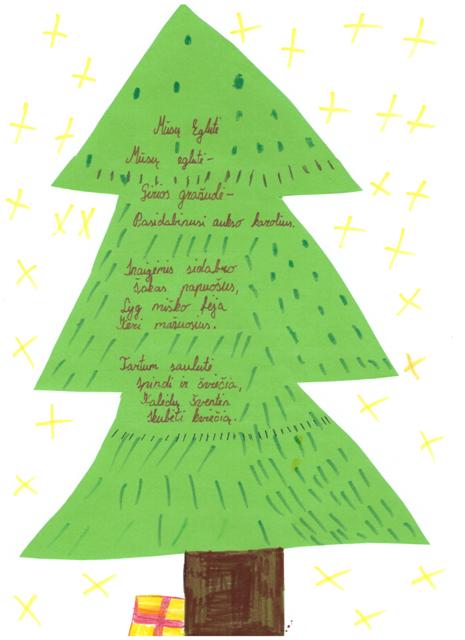 Mūsų Eglutė
Mūsų eglutė-
Girios gražuolė-
Pasidabinusi aukso karoliais.
Snaigėmis sidabro
šakas papuošus,
Lyg miško fėja
Žėri mažuosius.
Tartum saulutė
spindi ir šviečia,
Kalėdų šventėn
skubėti kviečia.